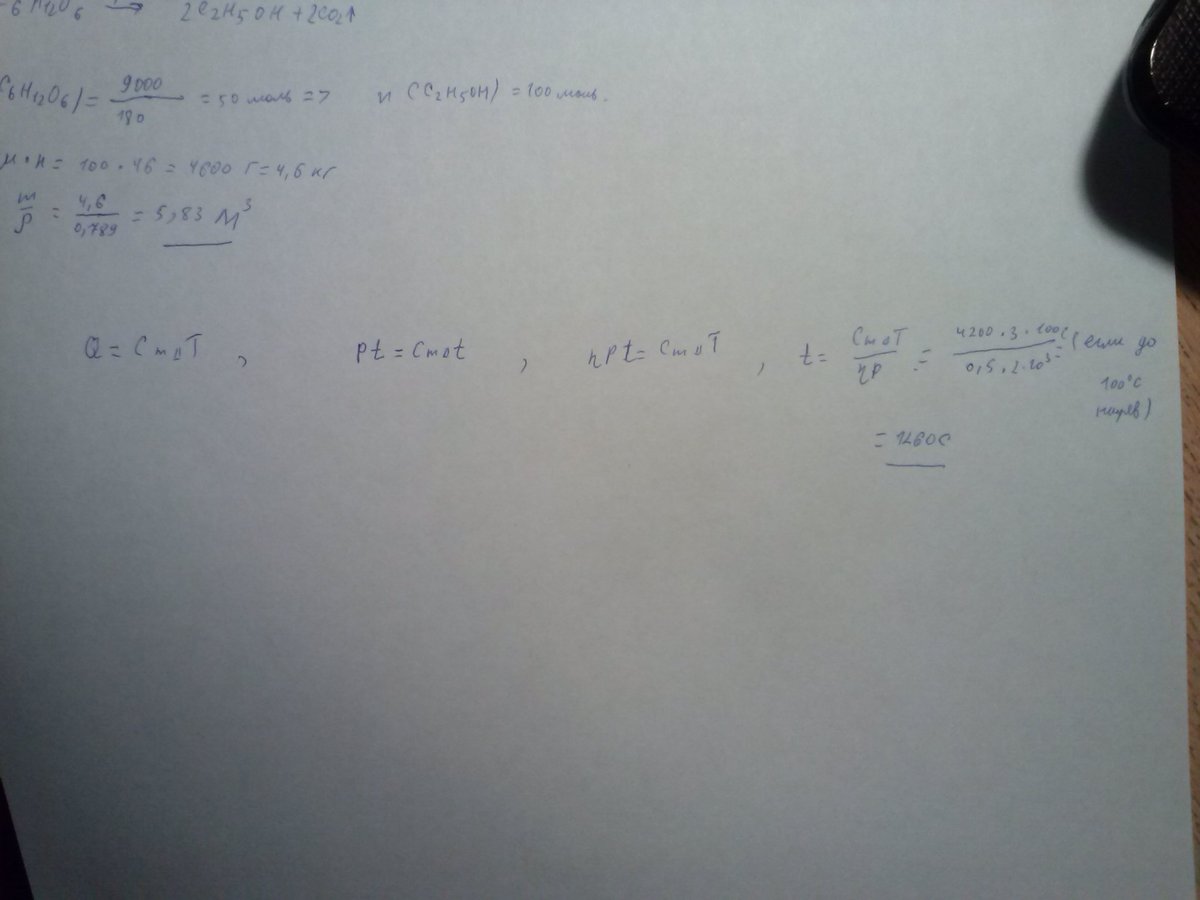 6H12O6 → 2C2H5OH + 2CO2↑
C6H12O6) = 9000/180 = 50 моль => n (C2H5OH) = 100 моль.
M · n = 100 · 46 = 4600 г = 4,6 кг
m/ρ = 4,6/0,789 = 5,83 м³
Q = CmΔT , Pt = CmΔt , ηPt = CmΔT , t = CmΔT/ηP = 4200 · 3 · 100/0,5 · 2 · 10³ = (если до
100°C
нагрев)
= 1260с